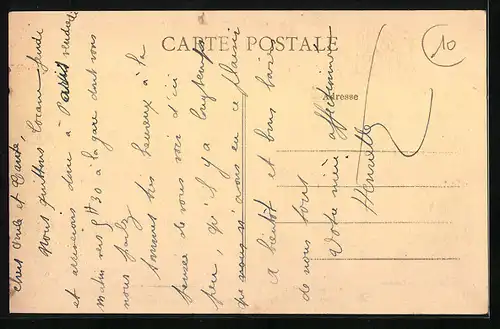 CARTE POSTALE
Adresse
10
Chers Oncle et Tante,
Nous quittons Jeudi
et arriverons donc à Paris vendredi
matin vers 8h30 à la gare dont vous
nous parlez
sommes très heureux à la
pensée de vous voir d'ici
peu, qu'il y a longtemps
que nous n'avons eu ce plaisir
A bientôt et bons baisers
de nous tous
Votre nièce affectionnée
Henriette